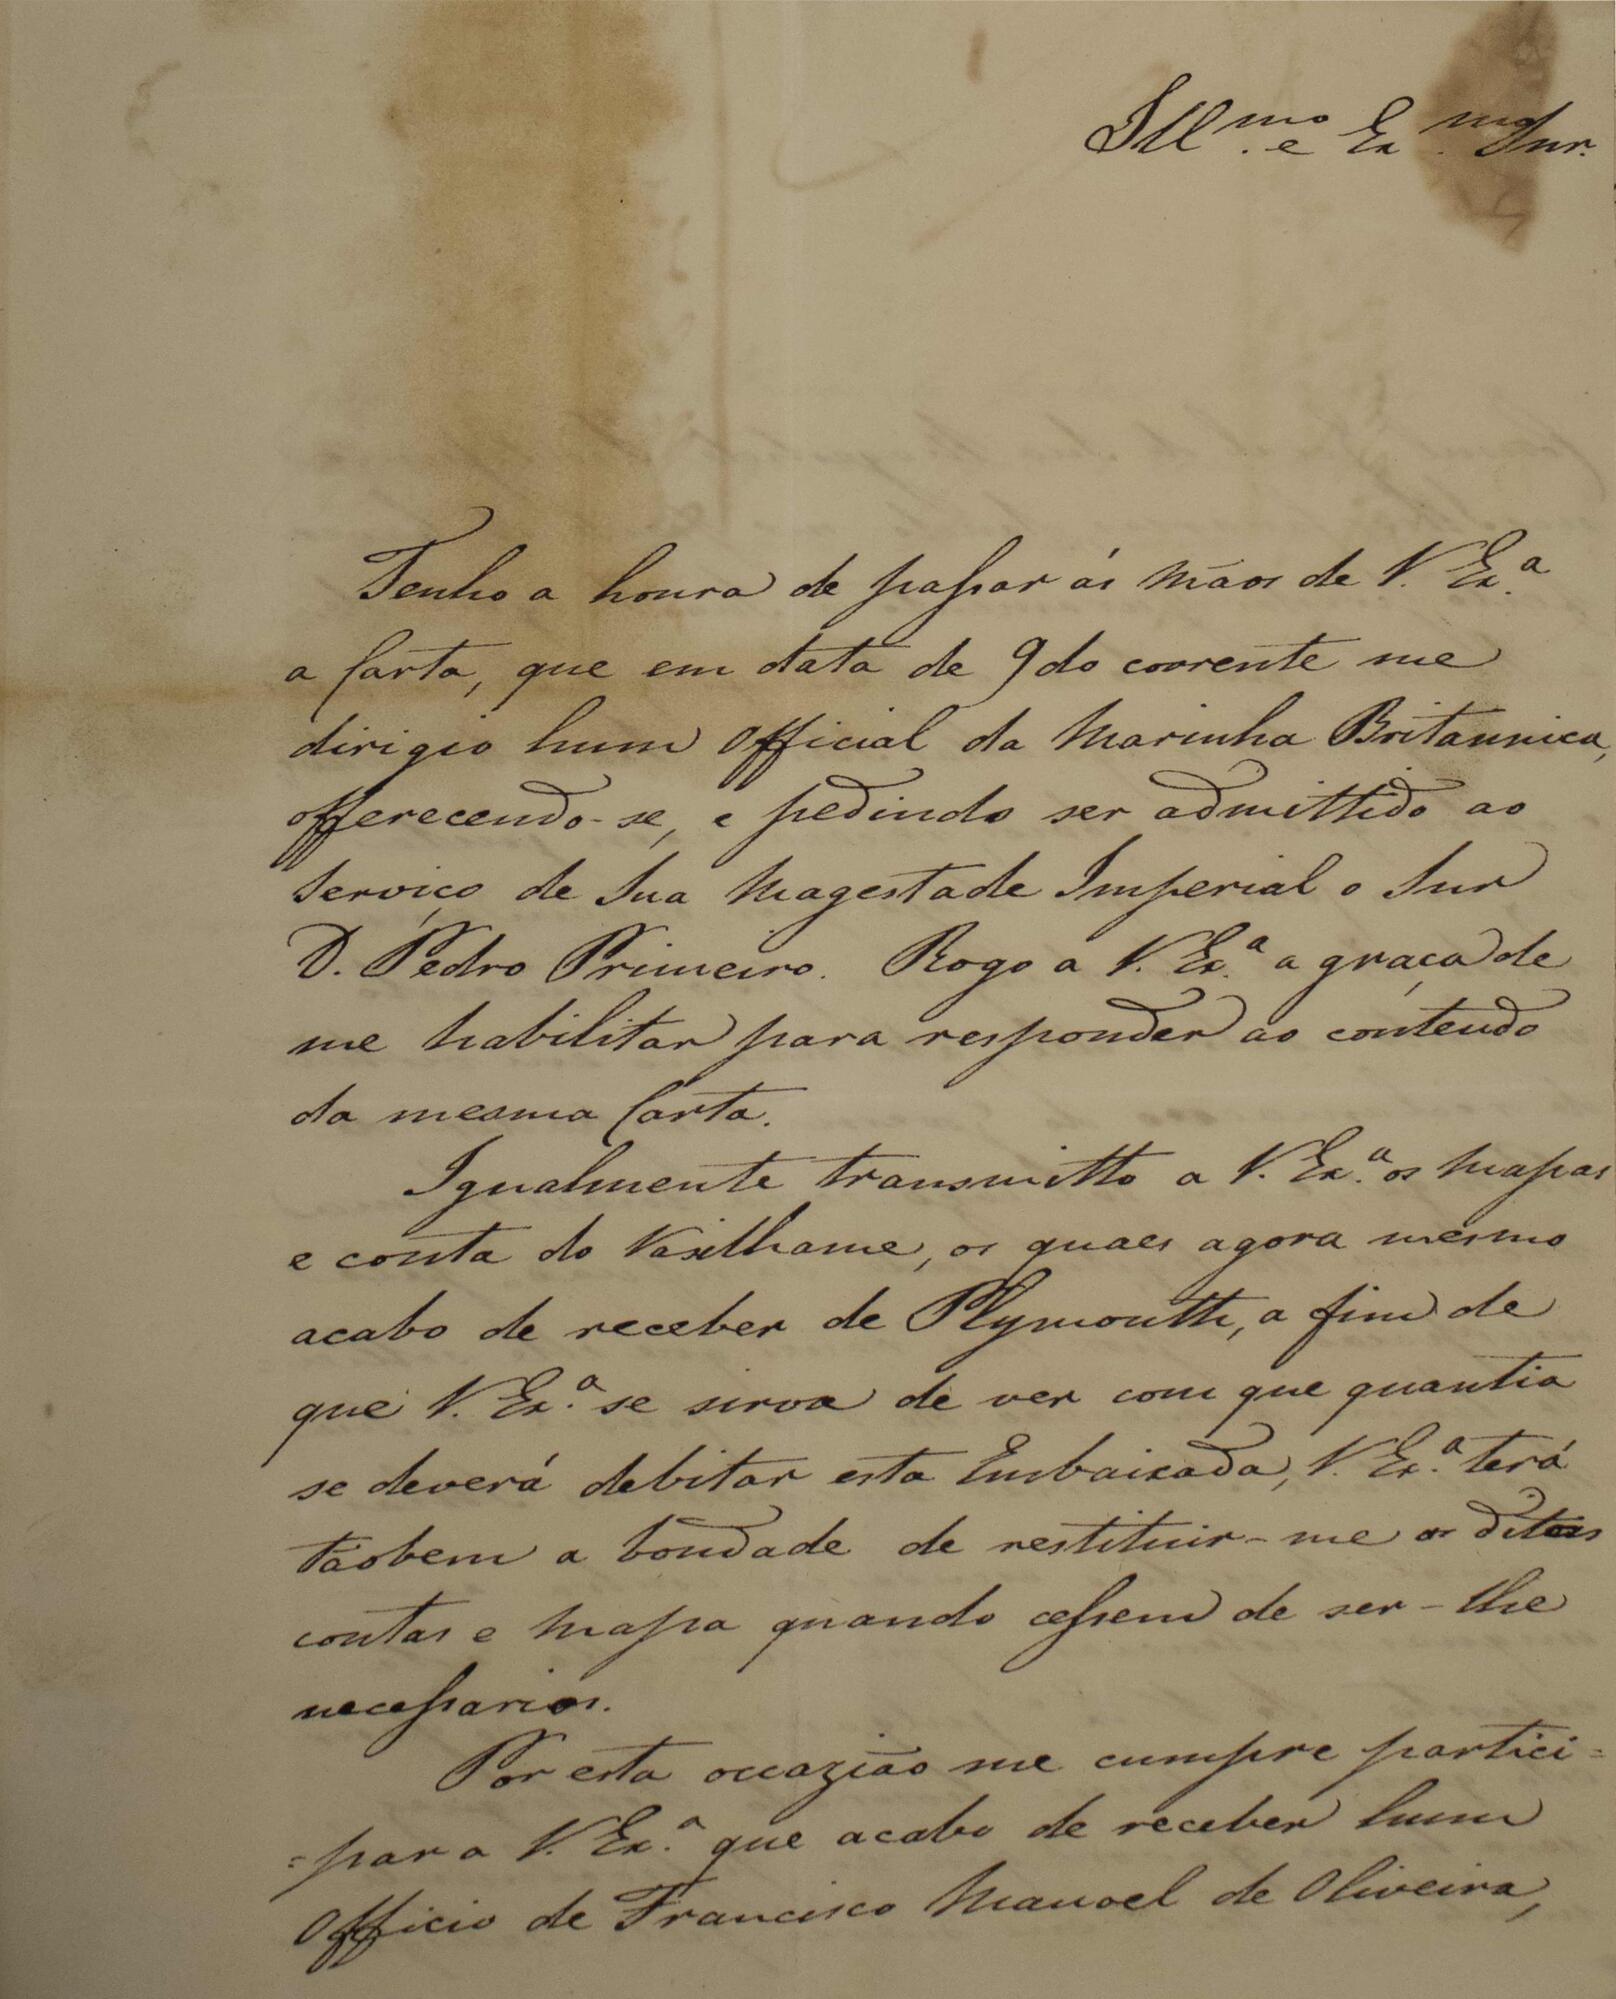 Ill.mo e Ex.mo Snr.
Tenho a honra de passar ás Mãos de V. Ex.a
a Carta, que em data de 9 do corrente me
dirigio hum Official da Marinha Britannica,
offerecendo-se, e pedindo ser admittido ao
Serviço de Sua Magestade Imperial o Snr
D. Pedro Primeiro. Rogo a V. Ex.a a graça de
me habilitar para responder ao contendo
da mesma Carta.
Igualmente transmitto a V. Ex.a os Mapas
e conta do Vasilhame, os quaes agora mesmo
acabo de receber de Plymouth, a fim de
que V. Ex.a se sirva de ver com que quantia
se deverá debitar esta Embaixada, V. Ex.a terá
tãobem a bondade de restituir-me as ditas
contas e Mapa quando cessem de ser-lhe
necessarios.
Por esta occazião me cumpre partici=
=par a V. Ex.a que acabo de receber hum
Officio de Francisco Manoel de Oliveira,